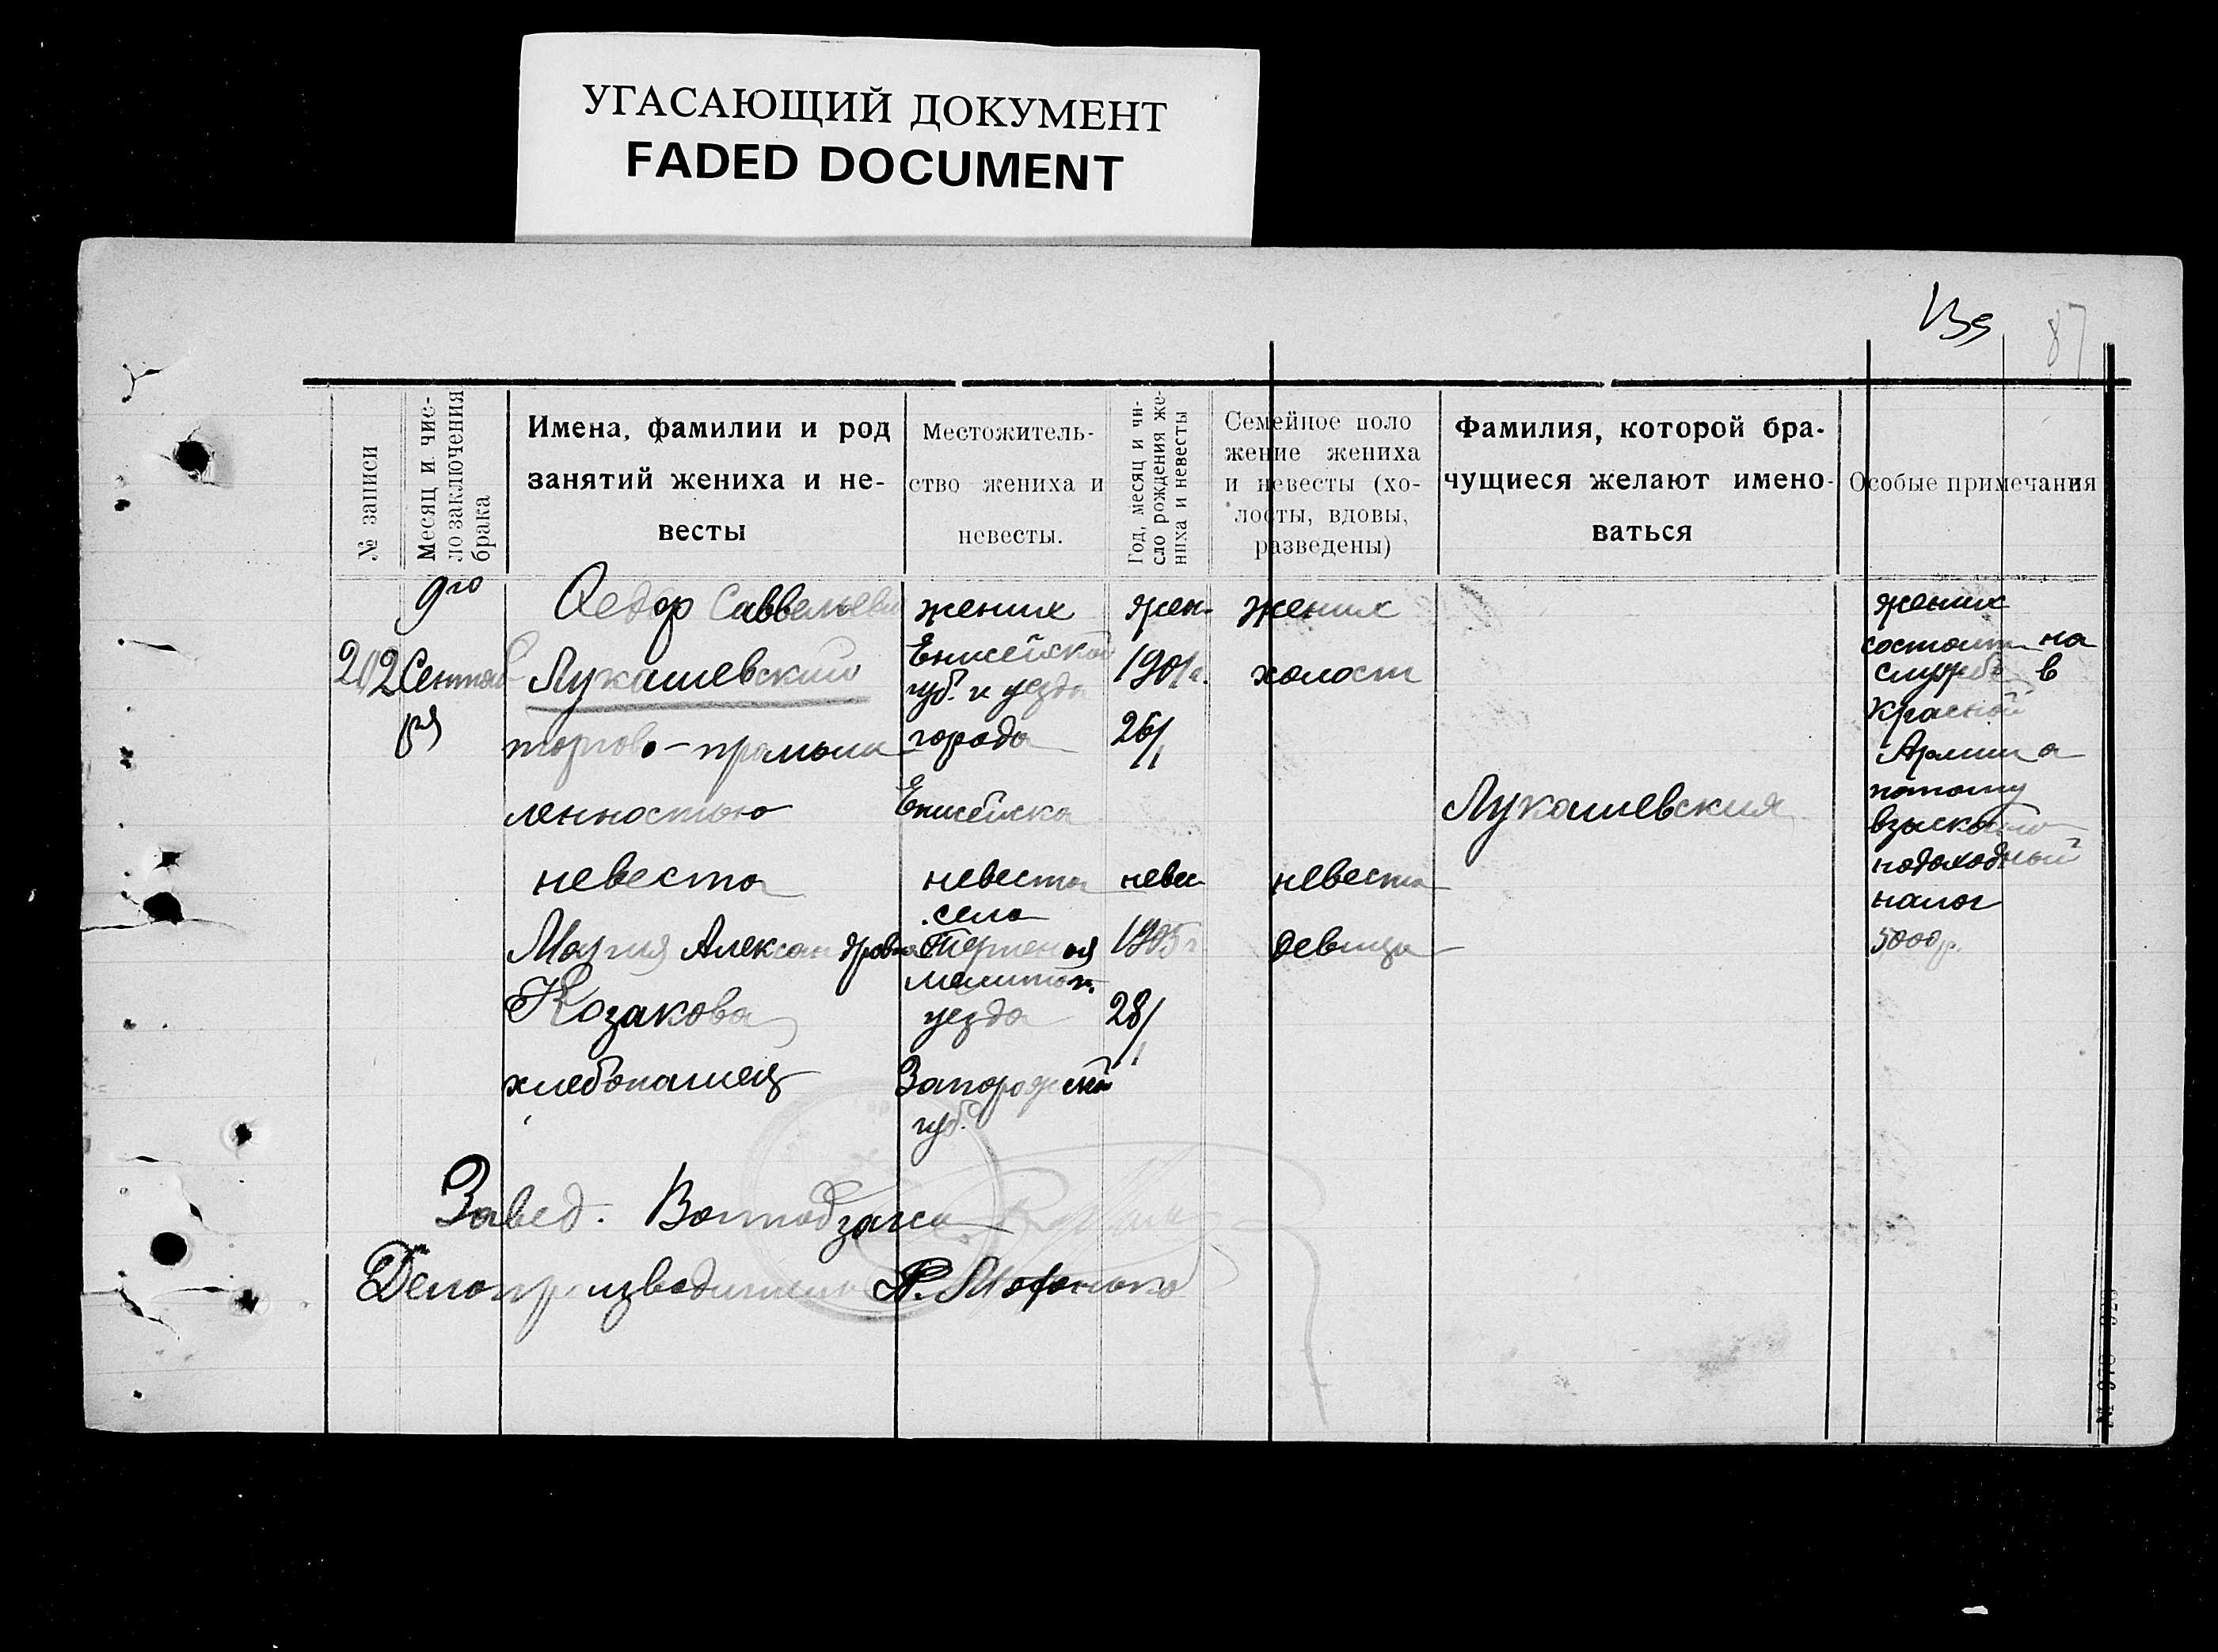 УГАСАЮЩИЙ ДОКУМЕНТ
FADED DOCUMENT
87
№ записи
Месяц и чис-
ло заключения
брака
Имена, фамилии и род
занятий жениха и не-
весты
Местожитель-
ство жениха и
невесты.
Год, месяц и чи-
сло рождения же-
ниха и невесты
Семейное поло
жение жениха
и невесты (хо-
лосты, вдовы,
разведены)
Фамилия, которой бра-
чущиеся желают имено-
ваться
Особые примечания
202
9го
Сентяб
ря
Федор Саввельеви
Лукашевский
торгово-промыш
ленностью
невеста
Мария Александровна
Козакова
хлебопашец
жених
Енисейской
губ. и уезда
города
Енисейска
невеста
села
уезда
Запорожской
губ.
жен.
1901г.
26/1
невес
1905г
28/1
жених
холост
невеста
девица
Лукашевския
жених
состоит на
службе в
Красной
Армии а
потому
взыскано
подоходный
налог
5000р.
Завед.
Делопроизводитель